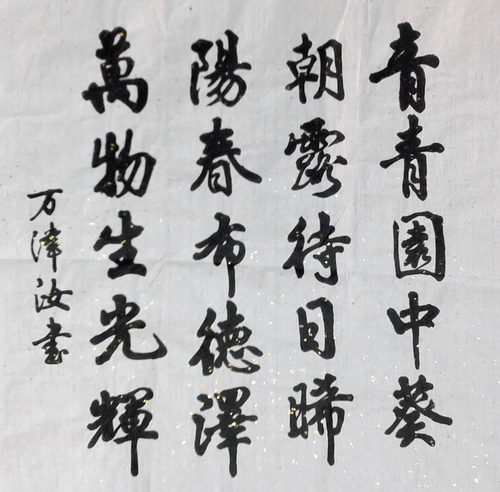 青青園中葵
朝露待日晞
陽春布德澤
萬物生光輝
万津汝书